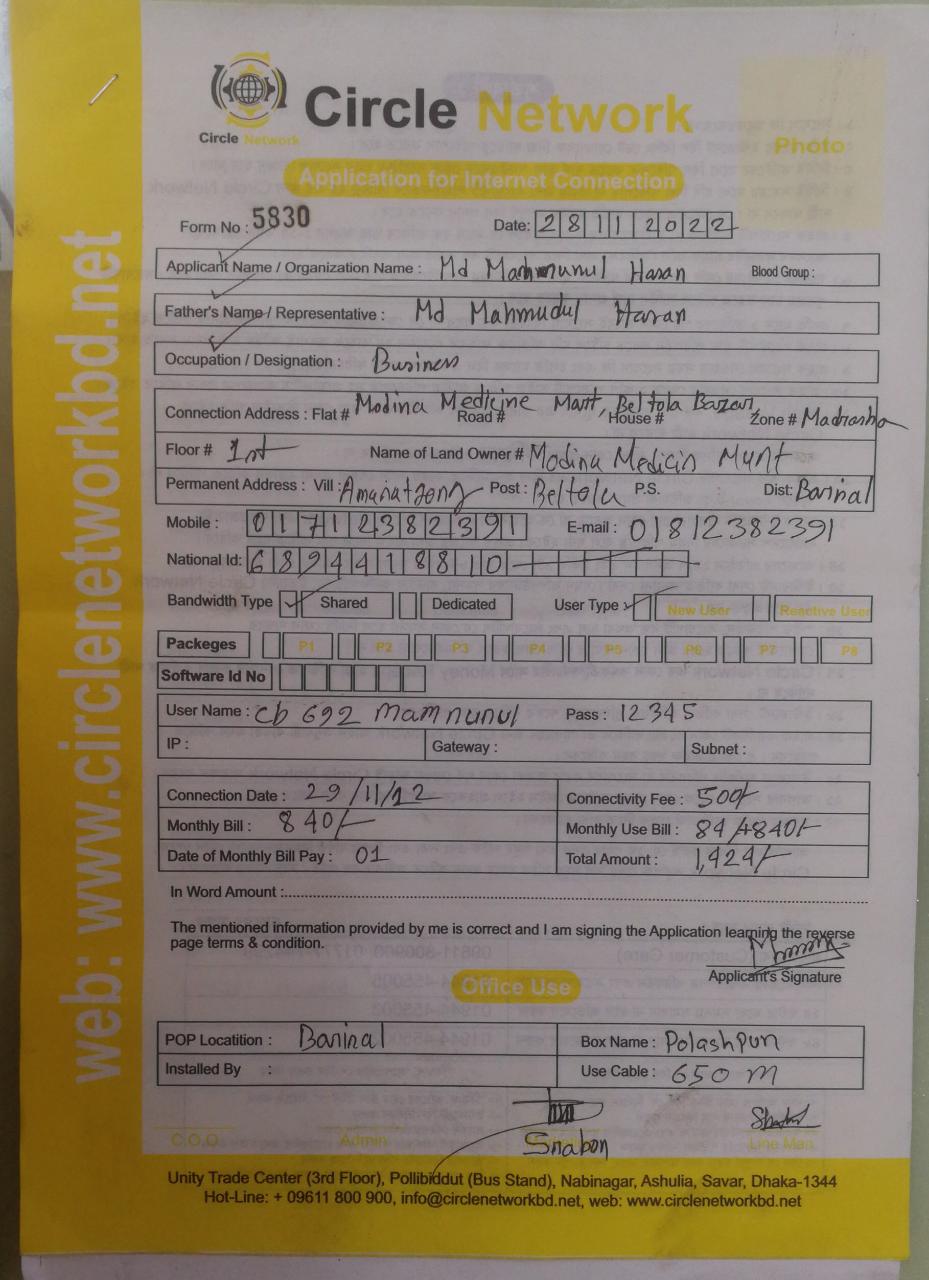 Circle Network
Circle Network
Photo
Application for Internet Connection
Form No : 5830 Date: 28112022
Applicant Name / Organization Name : Md Mahmunul Hasan Blood Group :
Father's Name / Representative : Md Mahmudul Hasan
Occupation / Designation : Business
Connection Address : Flat # Modina Medicine Mart, Beltola Bazar, Road # House # Zone # Madrasha
Floor # 1st Name of Land Owner # Modina Medicin Munt
Permanent Address : Vill : Post : Beltola P.S. : Dist: Barisal
Mobile : 01712382391 E-mail : 01812382391
National Id: 6894418810
Bandwidth Type Shared Dedicated User Type New User Reactive User
Packeges P1 P2 P3 P4 P5 P6 P7 P8
Software Id No
User Name : cb 692 mamnunul Pass : 12345
IP : Gateway : Subnet :
Connection Date : 29/11/22 Connectivity Fee : 500/-
Monthly Bill : 840/- Monthly Use Bill : 84 /-840/-
Date of Monthly Bill Pay : 01 Total Amount : 1,424/-
In Word Amount :
The mentioned information provided by me is correct and I am signing the Application learning the reverse
page terms & condition.
Applicant's Signature
Office Use
POP Locatition : Barisal Box Name : Polashpur
Installed By : Use Cable : 650 m
Snabon
C.O.O Admin Line Man
Unity Trade Center (3rd Floor), Pollibiddut (Bus Stand), Nabinagar, Ashulia, Savar, Dhaka-1344
Hot-Line: + 09611 800 900, info@circlenetworkbd.net, web: www.circlenetworkbd.net
web: www.circlenetworkbd.net